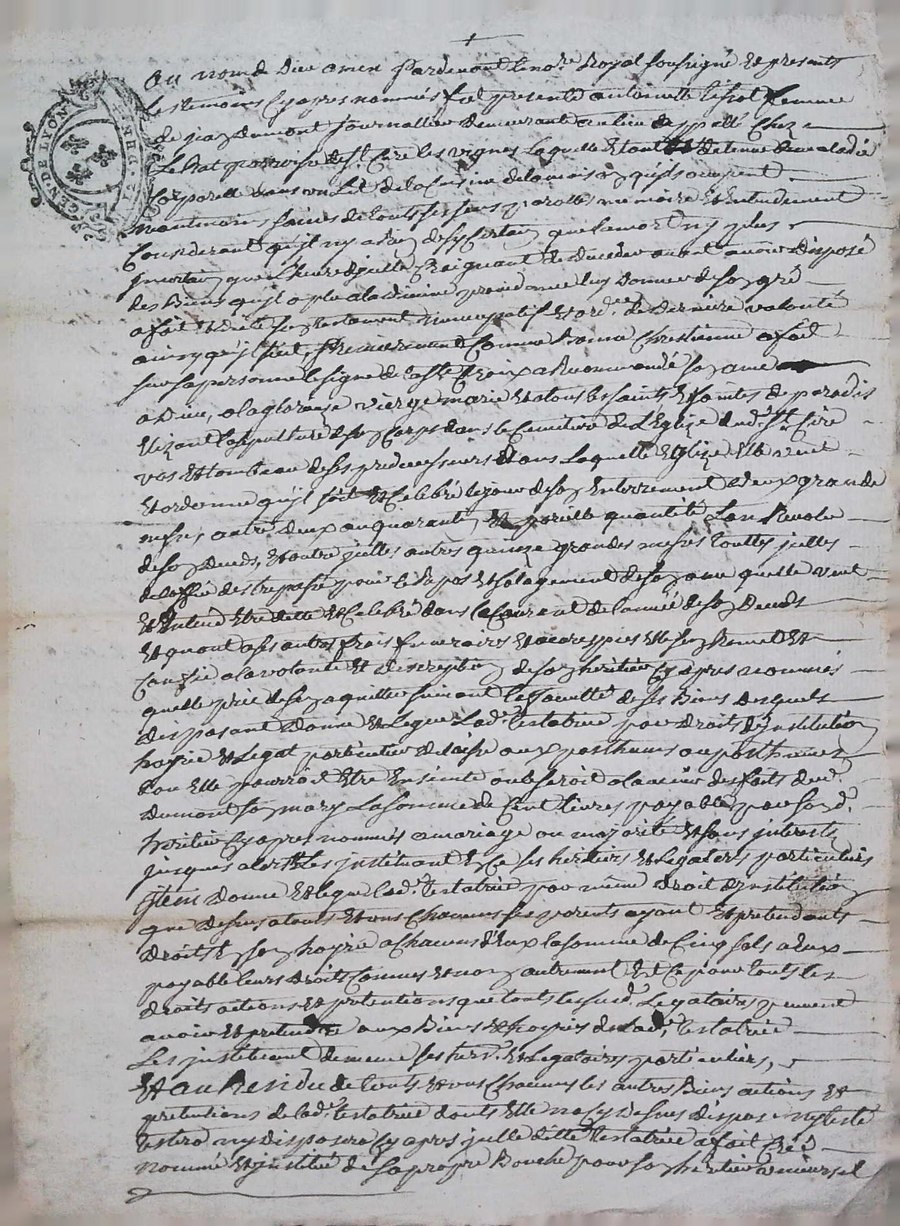 GEN. DE LYON
Au nom de Dieu amen Pardevant le no.re Royal soussigné et presents
les temoins cy apres nommés fut presente antoinette femme
de Dumont journallier demeurant au lieu chez
Le Rat parroisse de St Cire les vignes laquelle etant detenue de maladie
corporelle dans un Lit de la cuisine de la maison qu'ils occupent
neantmoins saine de touts ses sens parolles memoire et entendement
Considerant qu'il n'y a rien de sy certain que la mort ny plus
incertain que l'heure d'icelle Craignant de deceder avant avoir disposé
des Biens qu'il a plu a la divine providence luy Donner de son gré
a fait et dicté son testament nuncupatif et ord.re de derniere volonté
ainsy qu'il suit, premierement comme Bonne Chrestienne a fait
sur sa personne le signe de la ste Croix a Recommandé son ame
a Dieu, a la glorieuse vierge marie et a tous les saints et saintes de paradis
Elizant la sepulture de son Corps dans le Cimetiere de l'Eglize dud. St Cire
vas et tombeau de ses predecesseurs et dans laquelle Eglize elle veut
et ordonne qu'il soit celebré le jour de son Enterrement deux grande
messes autre deux au quarantin et pareille quantité L'an Revolu
de son Deceds, et outre icelles autres quinze grandes messes touttes icelles
de l'office des trepassés pour le Repos et solagement de son ame qu'elle veut
et Entend Etre dette et Celebré dans le Courant de l'année de son Deceds
et quant a ses autres frais funeraires et elle s'en Remet et
Confie a la volonté et discreption de son heritier cy apres nommés
quelle prie de s'en aquitter suivant la faculté de ses Biens desquels
disposant Donne et Legue Lad. testatrice par droit d'institution
hoyrie et Legat particulier delaissé aux posthumes ou posthumes
dou elle pourroit Etre Enceinte ou des faits dud.
Dumont son mary La somme de Cent Livres payable par sond.
heritier cy apres nommés a mariage ou majorité et sans interests
jusques alors les instituant En Ce ses heritiers et Legataires particuliers
Item Donne et legue Lad. testatrice par même droit d'institution
que dessus a touts et uns Chacuns ses parents ayant et pretendants
droits En son hoyrie a Chacuns d'Eux la somme de Cinq sols a Eux
payable leurs droits Connus et non autrement Et Ce pour touts les
droits actions et pretentions que touts les susd. Legataires peuvent
avoir et pretendre aux Biens et hoyries de Lad. testatrice
Les instituant de meme ses her. et Legataires particuliers,
Et au Residu de touts et uns Chacuns les autres Biens actions et
pretentions de lad. testatrice donts Elle n'a cy dessus disposé ny testé
testera ny disposera cy apres icelle ditte testatrice a fait Créé
nommé et institué de sa propre Bouche pour son heritier universel